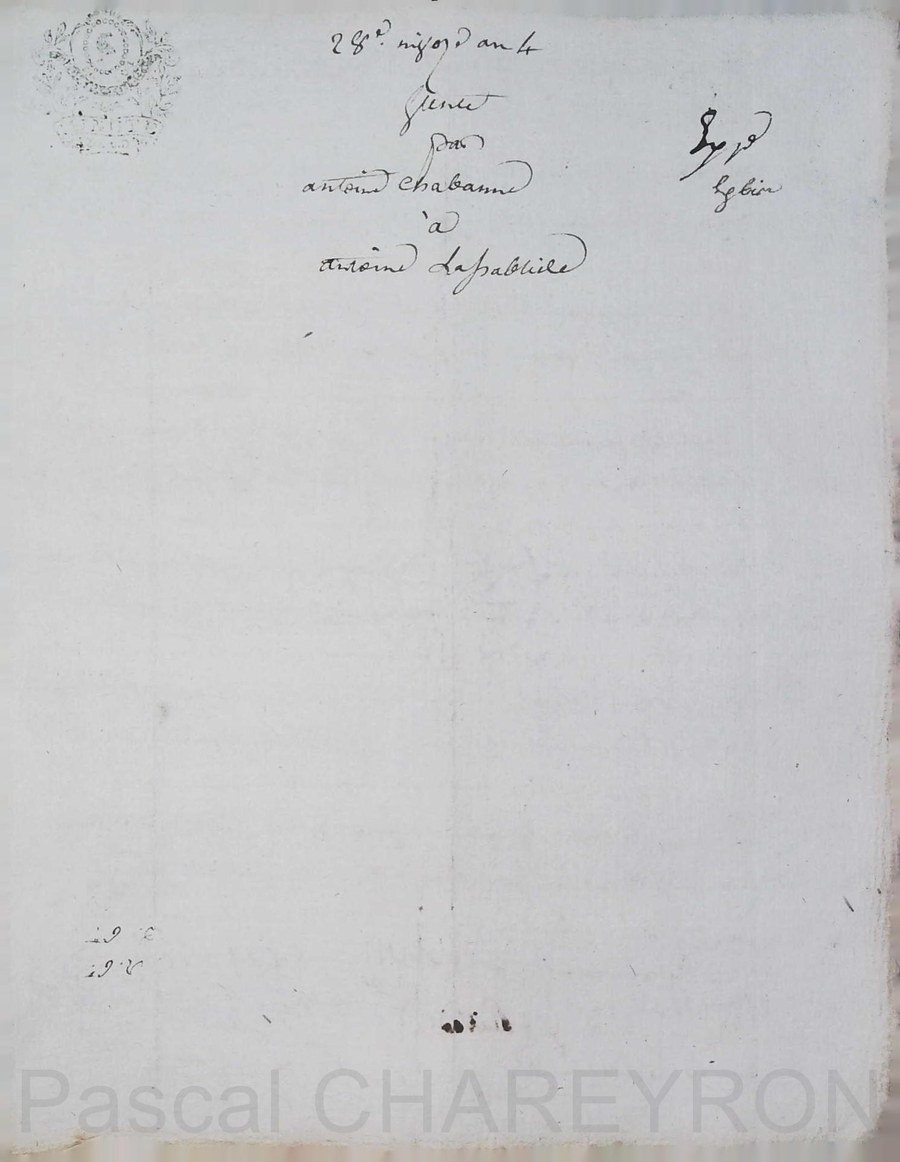 28e. nivoze an 4
Vente
par
antoine Chabanne
à
antoine Lasablière
Expé
Pascal CHAREYRON